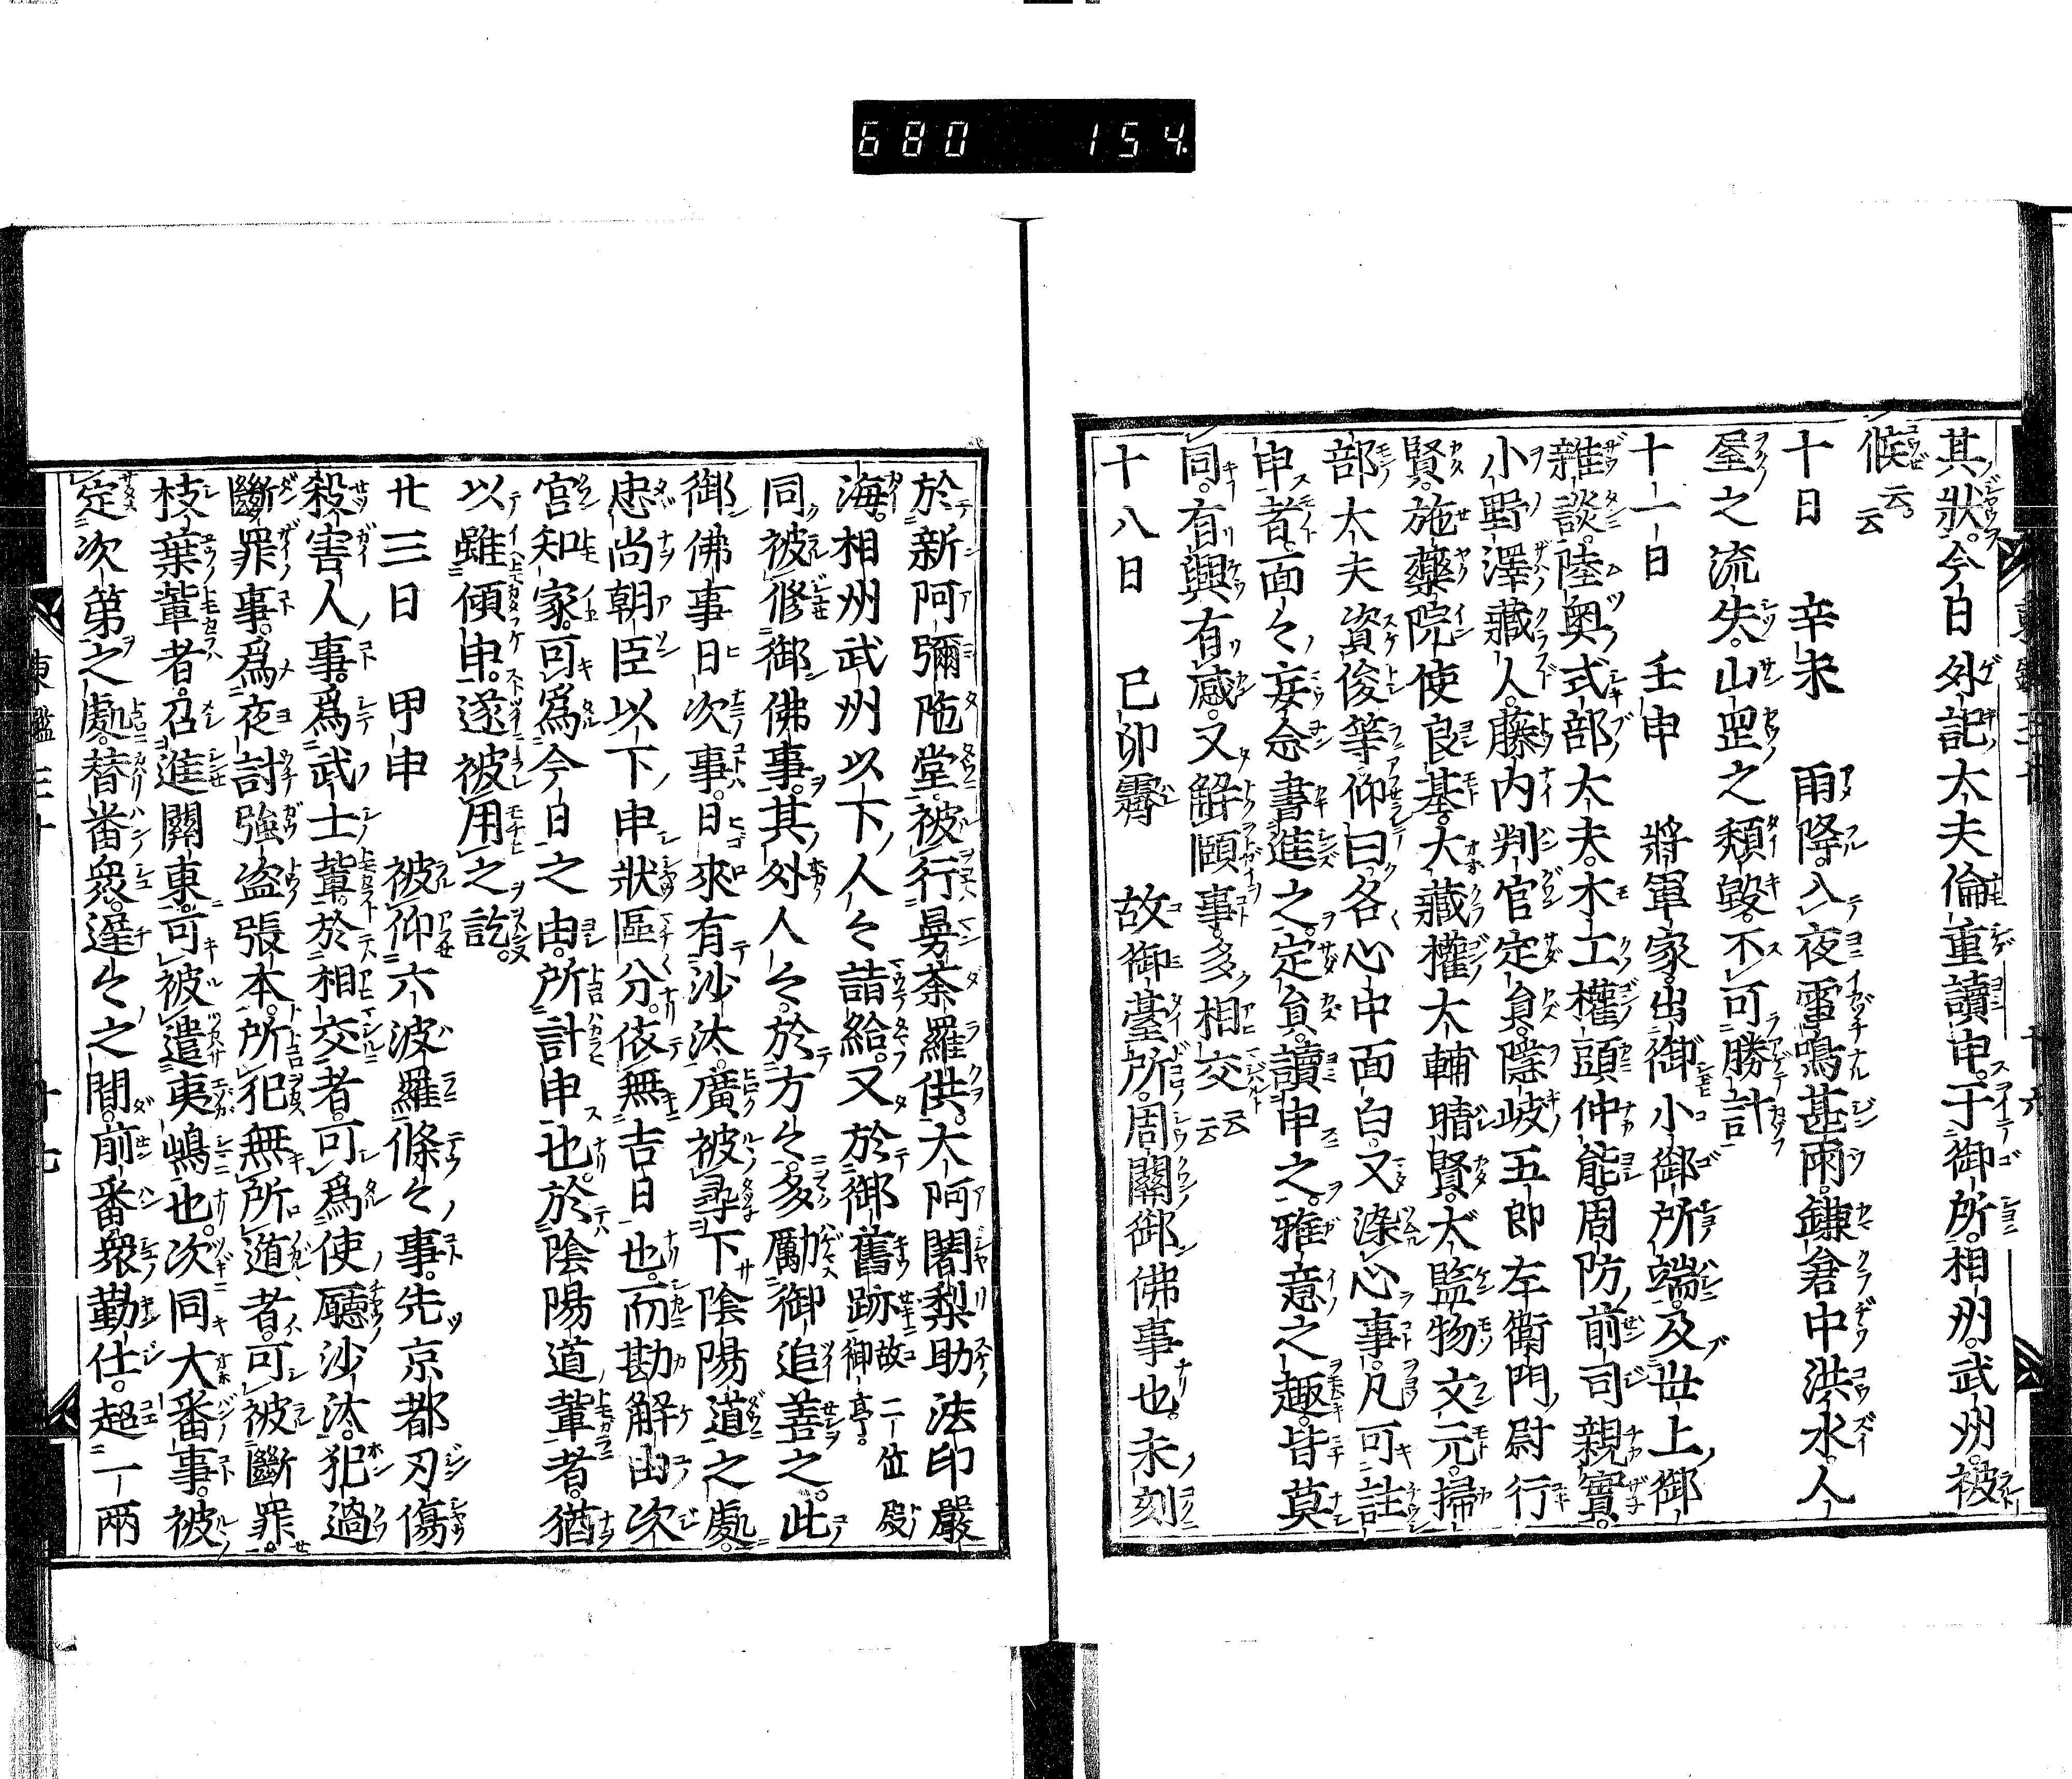 680 154
其狀。今日外記大夫倫重讀申。于御所。相州。武州。被
候云云。
十日 辛未 雨降。入夜雷鳴甚雨。鎌倉中洪水。人
屋之流失。山罡之頽毀。不可勝計
十一日 壬申 將軍家。出御小御所端。及世上御
雜談。陸奧式部大夫。木工權頭仲能。周防前司親實。
小野澤藏人。藤內判官定員。隱岐五郎左衛門尉行
賢。施藥院使良基。大藏權大輔晴賢。大監物文元。掃
部大夫資俊等仰曰。各心中面白。又染心事。凡可註
申者。面々妄念書進之。定員。讀申之。雅意之趣。皆莫
同。有興有感。又解頤事。多相交云云
十八日 己卯霽 故御臺所。周關御佛事也。未刻
於新阿彌陀堂。被行曼荼羅供。大阿闍梨助法印嚴
海。相州武州以下。人々詣給。又於御舊跡故二位殿御亭。
同被修御佛事。其外人々。於方々。多勵御追善之。此
御佛事日次事。日來有沙汰。廣被尋下陰陽道之處。
忠尚朝臣以下申狀區分。依無吉日也。而勘解由次
官知家。可爲今日之由。所計申也。於陰陽道輩者。猶
以雖傾申。遂被用之訖。
廿三日 甲申 被仰六波羅條々事。先京都刃傷
殺害人事。爲武士輩。於相交者。可爲使廳沙汰。犯過
斷罪事。爲夜討強盜張本。所犯無所遁者。可被斷罪。
枝葉輩者。召進關東。可被遣夷嶋也。次同大番事。被
定次第之處。替番衆。遲々之間。前番衆勤仕。超一兩